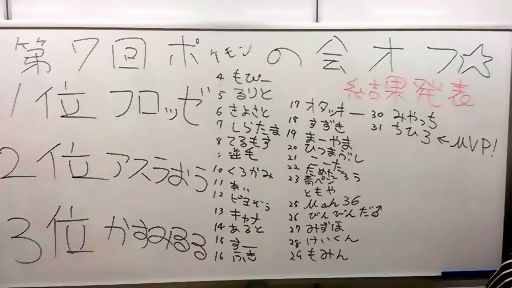 第7回ポケモンの会オフ☆
結果発表
1位 フロッゼ
2位 アスラおう
3位 かすみほろ
4 もぴー
5 るりと
6 きよさと
7 しらたま
8 てるもす
10 くろかみ
11 あい
12 ピヨぞう
13 キャナ
14 あると
15 すー
16 ふき
17 オタッキー
18 すぎさ
19 まーやま
20 ひつまぶし
21 こーた
ともや
25 Mah36
26 びんびんだる
27 みずほ
28 けいくん
29 もみん
30 みやっち
31 ちひろ ← MVP!